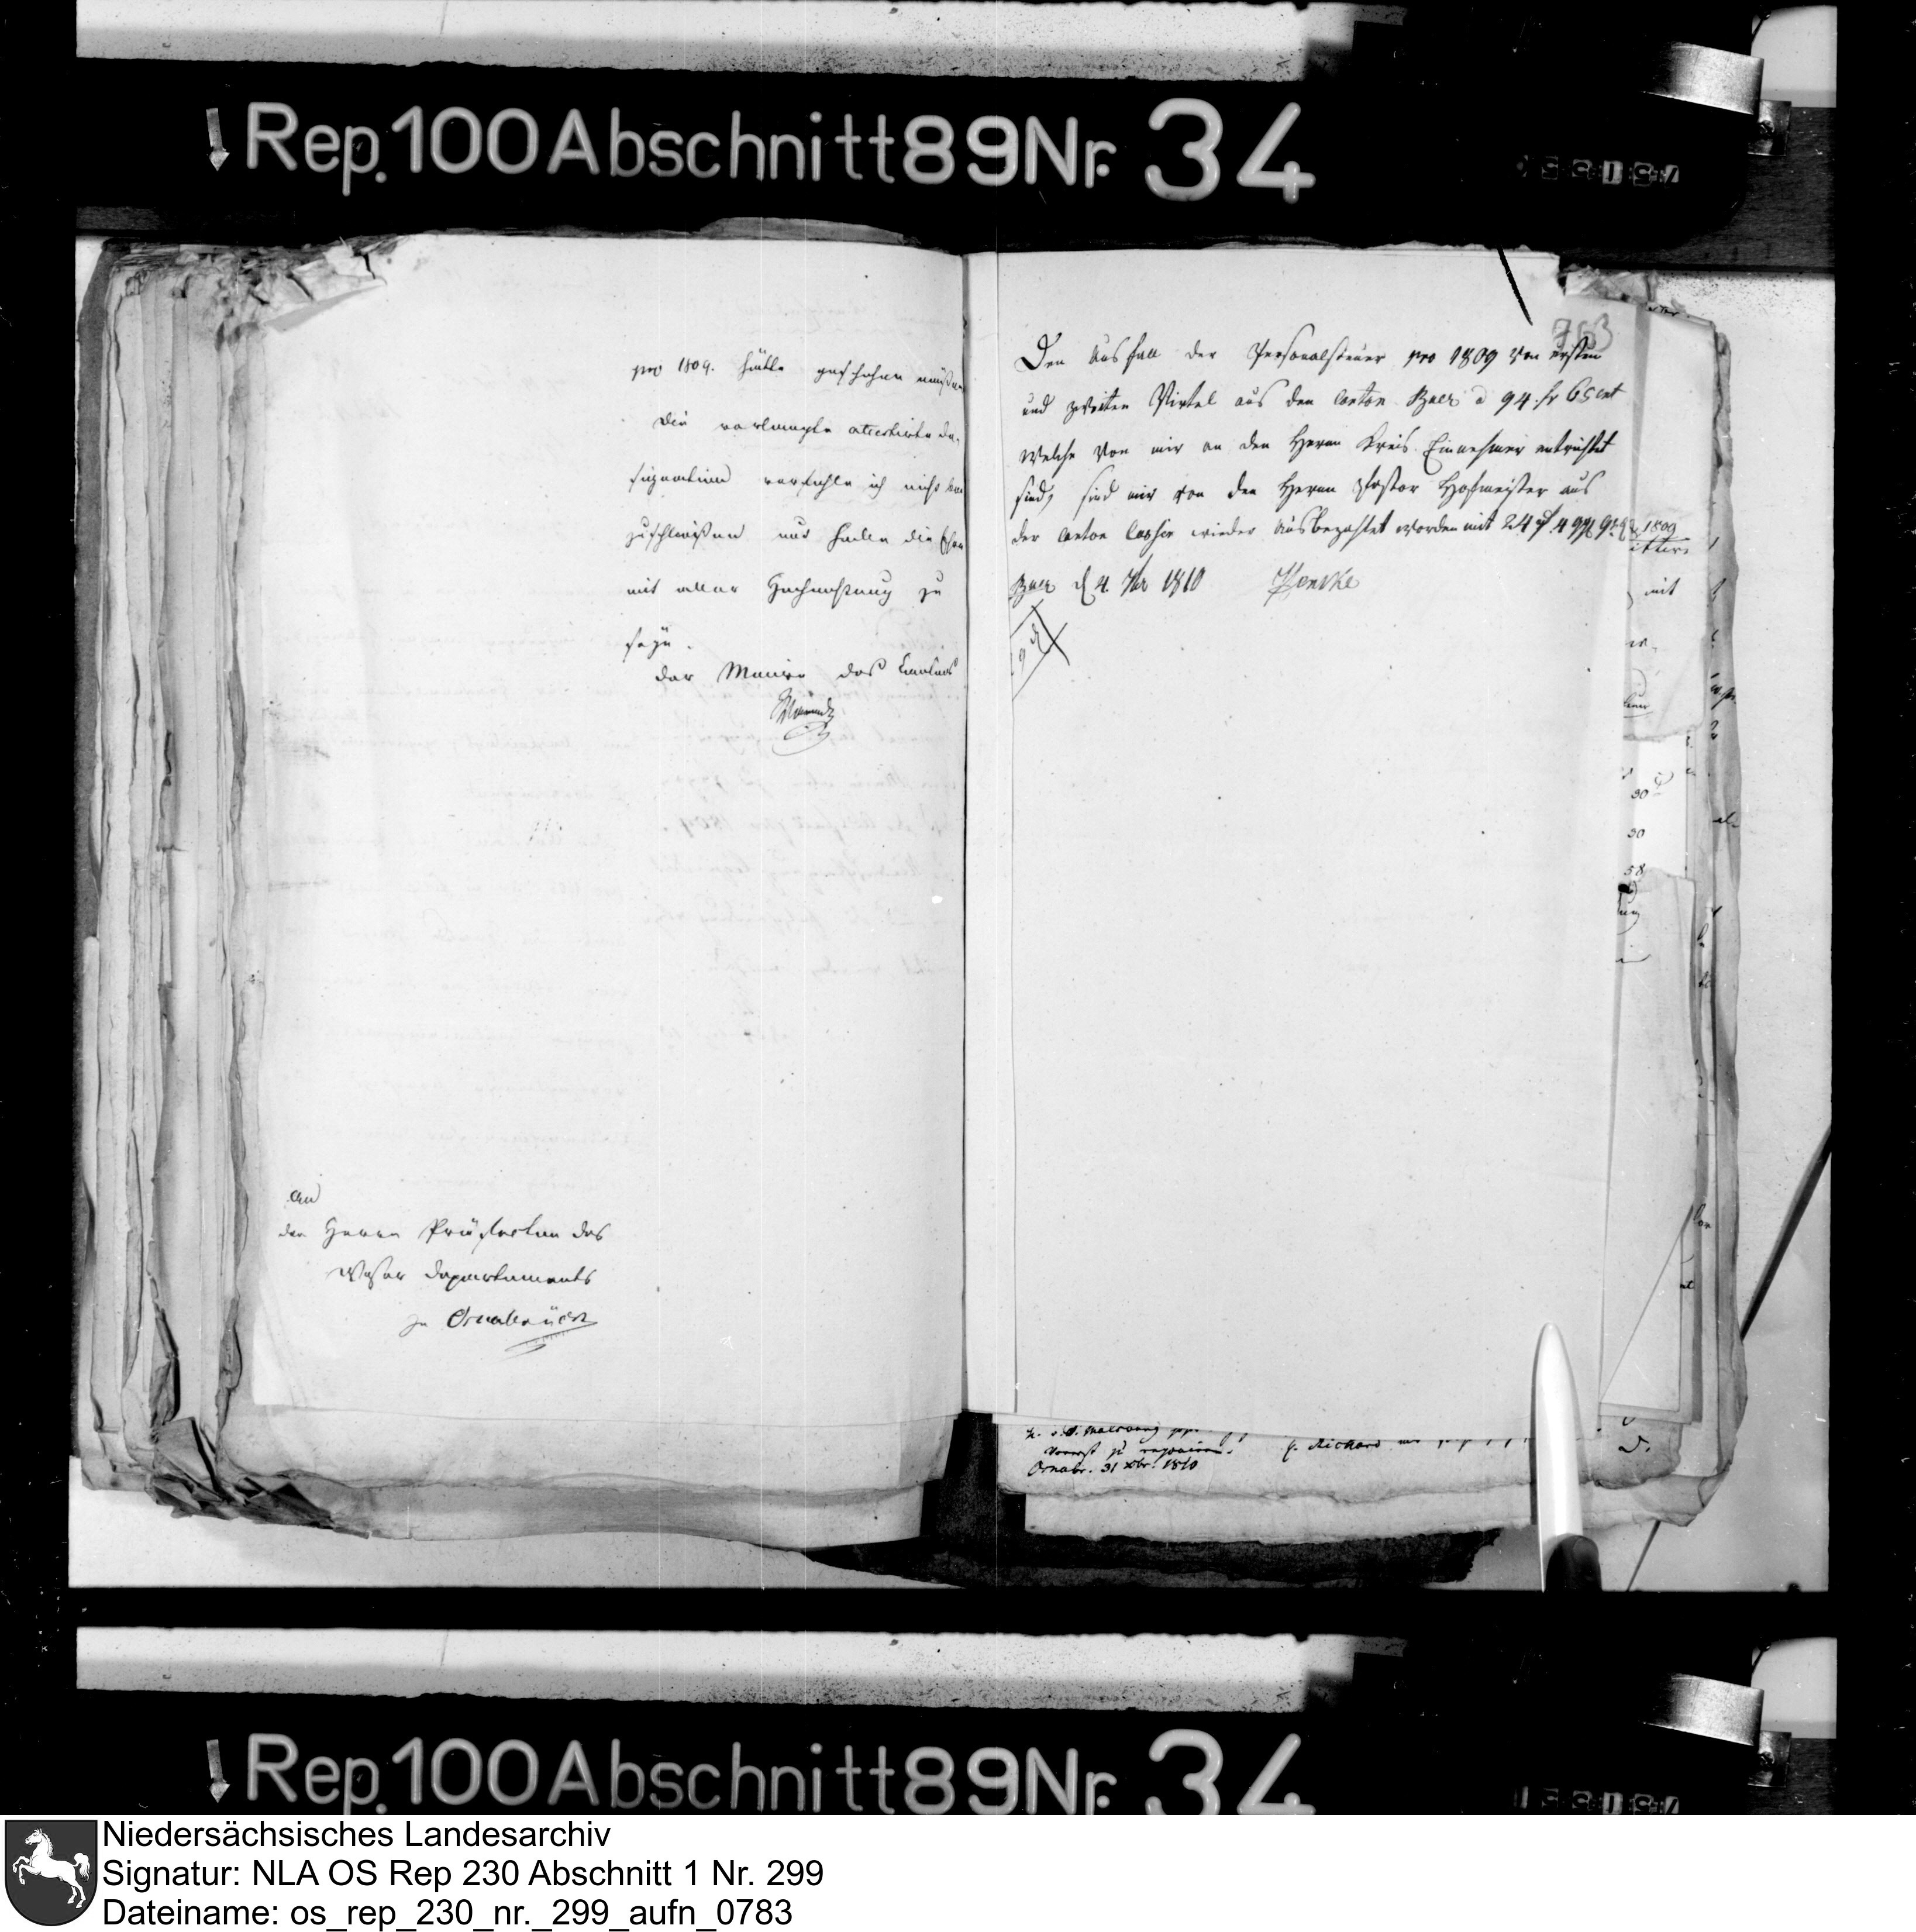 Rep. 100 Abschnitt 89 Nr. 34
pro 1809. hätte geschehen müßen
Die verlangte attestirte De-
signation verfehle ich nicht
zuschließen und habe die Ehre
mit aller Hochachtung zu
seyn.
der Maire des Cantons
an
den Herrn Präfecten des
Weser Departements
zu Osnabrück
763
Den Ausfall der Personalsteuer pro 1809 von ersten
und zweiten Virtel aus den Canton Buer a 94 fr 65 cnt
welche von mir an den Herrn Kreis Einnehmer entrichtet
sind, sind mir von den Herrn Pastor Hofmeister aus
der Canton Casse wieder ausbezahlt worden mit 24 4
Buer d 4. 1810
1809
mit
30
30
58
zu
Osnabr. 31 Xbr. 1810
Richard
Rep. 100 Abschnitt 89 Nr. 34
Niedersächsisches Landesarchiv
Signatur: NLA OS Rep 230 Abschnitt 1 Nr. 299
Dateiname: os_rep_230_nr._299_aufn_0783